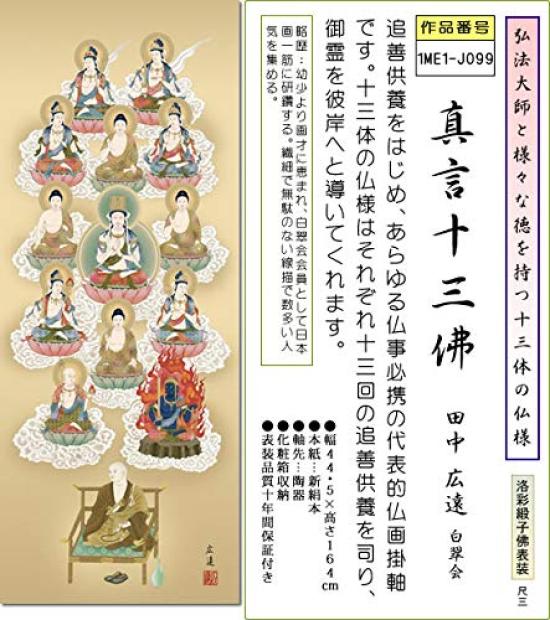 弘法大師と様々な徳を持つ十三体の仏様
洛彩緞子佛表装
尺三
作品番号
1ME1-J099
真言十三佛
田中広遠
白翠会
追善供養をはじめ、あらゆる仏事必携の代表的仏画掛軸
です。十三体の仏様はそれぞれ十三回の追善供養を司り、
御霊を彼岸へと導いてくれます。
略歴：幼少より画才に恵まれ、白翠会会員として日本
画一筋に研鑽する。繊細で無駄のない線描で数多い人
気を集める。
●幅44・5×高さ164cm
●本紙…新絹本
●軸先…陶器
●化粧箱収納
●表装品質十年間保証付き
広遠